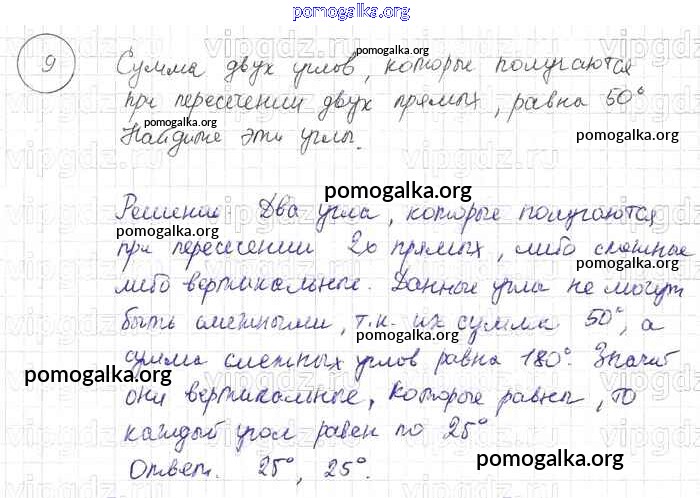 pomogalka.org
9
Сумма двух углов, которые получаются
при пересечении двух прямых, равна 50°
Найдите эти углы.
pomogalka.org
pomogalka.org
pomogalka.org
pomogalka.org
Решение. Два угла, которые получаются
при пересечении 2х прямых, либо смежные
pomogalka.org
pomogalka.org
либо вертикальные. Данные углы не могут
быть смежными, т.к. их сумма 50°, а
pomogalka.org
сумма смежных углов равна 180°. Значит
pomogalka.org
pomogalka.org
они вертикальные, которые равны, то
каждый угол равен по 25°
Ответ. 25°, 25°.
pomogalka.org
vipgdz.ru